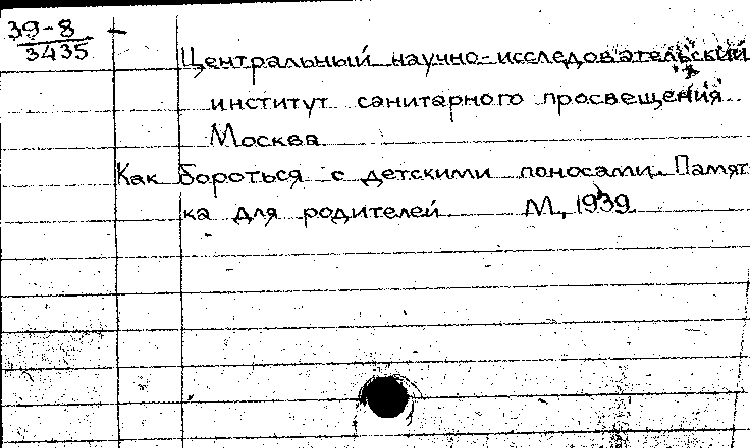 39-8
3435
Центральный научно-исследовательский
институт санитарного просвещения
Москва
Как бороться с детскими поносами. Памят
ка для родителей М., 1939